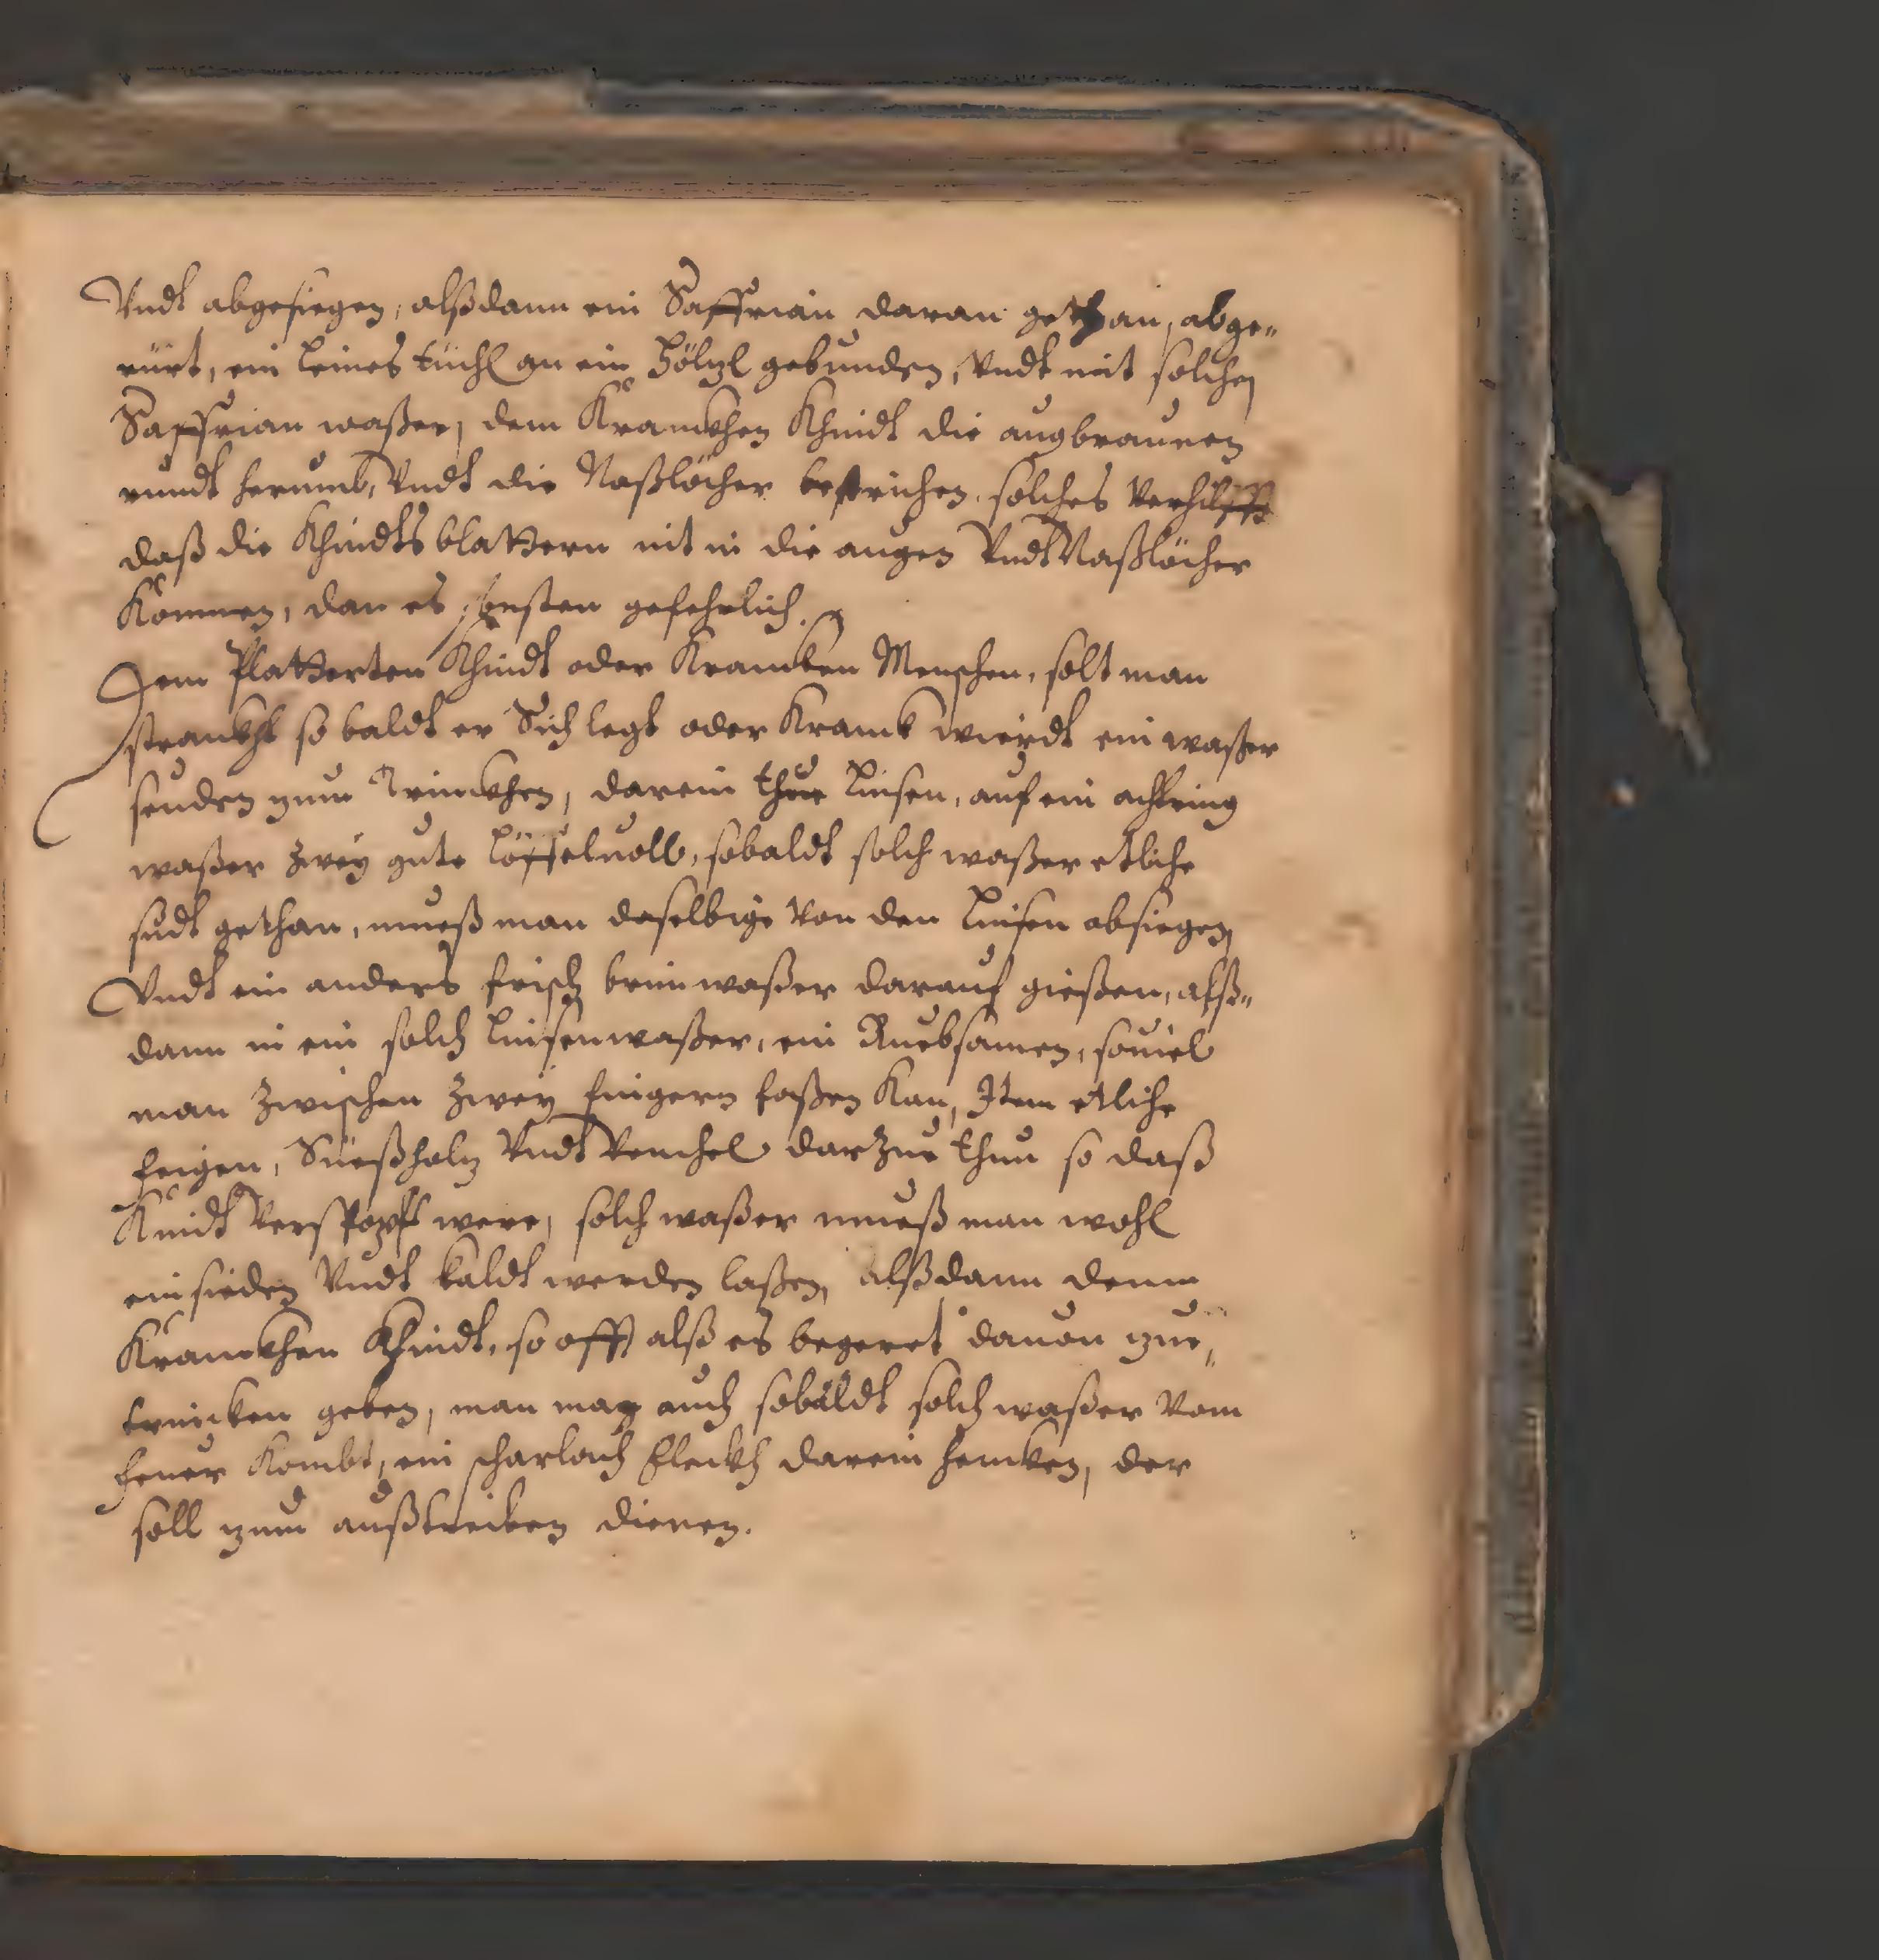 Vndt abgesiegen, alßdann ein Saffrian daran gethan, abge„
rürt, ein leines tüchl an ein Hölzl gebunden, Vndt mit solchen
Saffrian waßer, dem Kranckhen Khindt die augbraunen
rundt herumb, Vndt die Naßlöcher bestrichen, solches Verhilfft
daß die Khindts blattern nit in die augen Vndt Naßlöcher
Kommen, dan es sonsten gefehrlich.
Dem Platterten Khindt oder Krancken Menschen, solt man
strackhs so baldt er Sich legt oder Kranck wierdt ein waßer
seuden zum Trinckhen, darein thue Linsen, auf ein achtring
waßer zweÿ gute Löffeluoll, sobaldt solch waßer etliche
sudt gethan, mueß man daselbige Von den Linsen absiegen
Vndt ein anders frisch brunwaßer darauf gießen, alß„
dann in ein solch Linsenwaßer, ein Ruebsamen, souiel
man Zwischen Zweÿ fingern faßen Kan, Item etliche
feigen, Süeßholz Vndt Venchel darZue thun so daß
Kindt Verstopft were, solch waßer mueß man wohl
einsieden Vndt kaldt werden laßen, alßdann denm
Kranckhen Khindt, so offt alß es begeret dauon zue„
trincken geben, man mag auch sobaldt solch waßer Vom
feuer Kombt, ein scharlach fleckh darein hencken, der
soll zum außtreiben dienen.